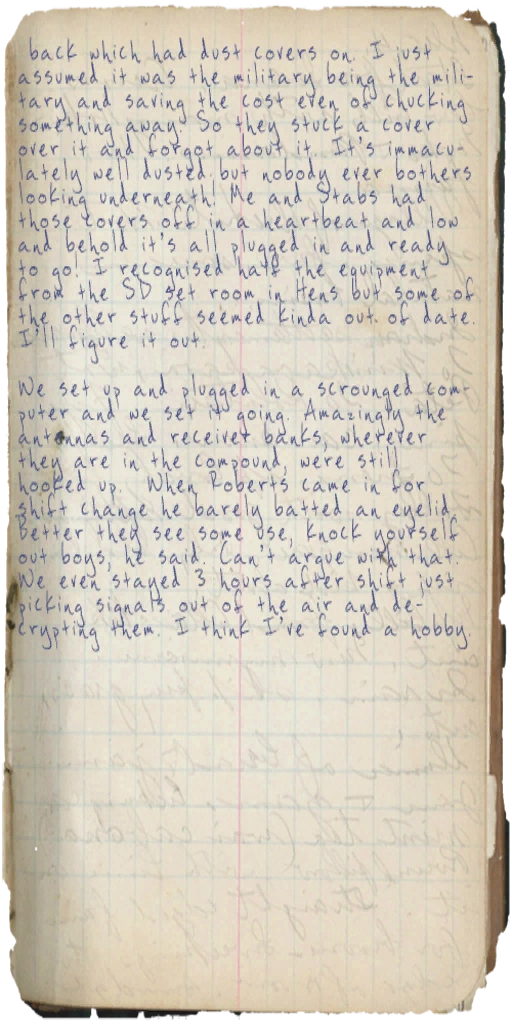 back which had dust covers on. I just
assumed it was the military being the mili-
tary and saving the cost even of chucking
something away. So they stuck a cover
over it and forgot about it. It's immacu-
lately well dusted but nobody ever bothers
looking underneath! Me and Stabs had
those covers off in a heartbeat and low
and behold it's all plugged in and ready
to go! I recognised half the equipment
from the SD set room in Hens but some of
the other stuff seemed kinda out of date.
I'll figure it out.
We set up and plugged in a scrounged com-
puter and we set it going. Amazingly the
antennas and receiver banks, wherever
they are in the compound, were still
hooked up. When Roberts came in for
shift change he barely batted an eyelid.
Better they see some use, knock yourself
out boys, he said. Can't argue with that.
We even stayed 3 hours after shift just
picking signals out of the air and de-
crypting them. I think I've found a hobby.